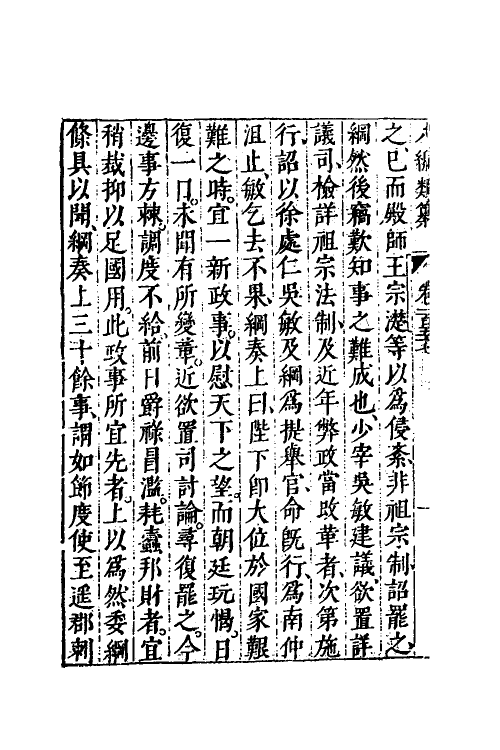 八編類纂 卷一百五十七
之已而殿師王宗濋等以爲侵紊非祖宗制詔罷之
綱然後竊歎知事之難成也少宰吳敏建議欲置詳
議司檢詳祖宗法制及近年弊政當改革者次第施
行詔以徐處仁吳敏及綱爲提舉官命既行爲南仲
沮止敏乞去不果綱奏上曰陛下卽大位於國家艱
難之時宜一新政事以慰天下之望而朝廷玩愒日
復一日未聞有所變革近欲置司討論尋復罷之今
邊事方棘調度不給前日爵祿冒濫耗蠹邦財者宜
稍裁抑以足國用此政事所宜先者上以爲然委綱
條具以聞綱奏上三十餘事謂如節度使至遥郡刺